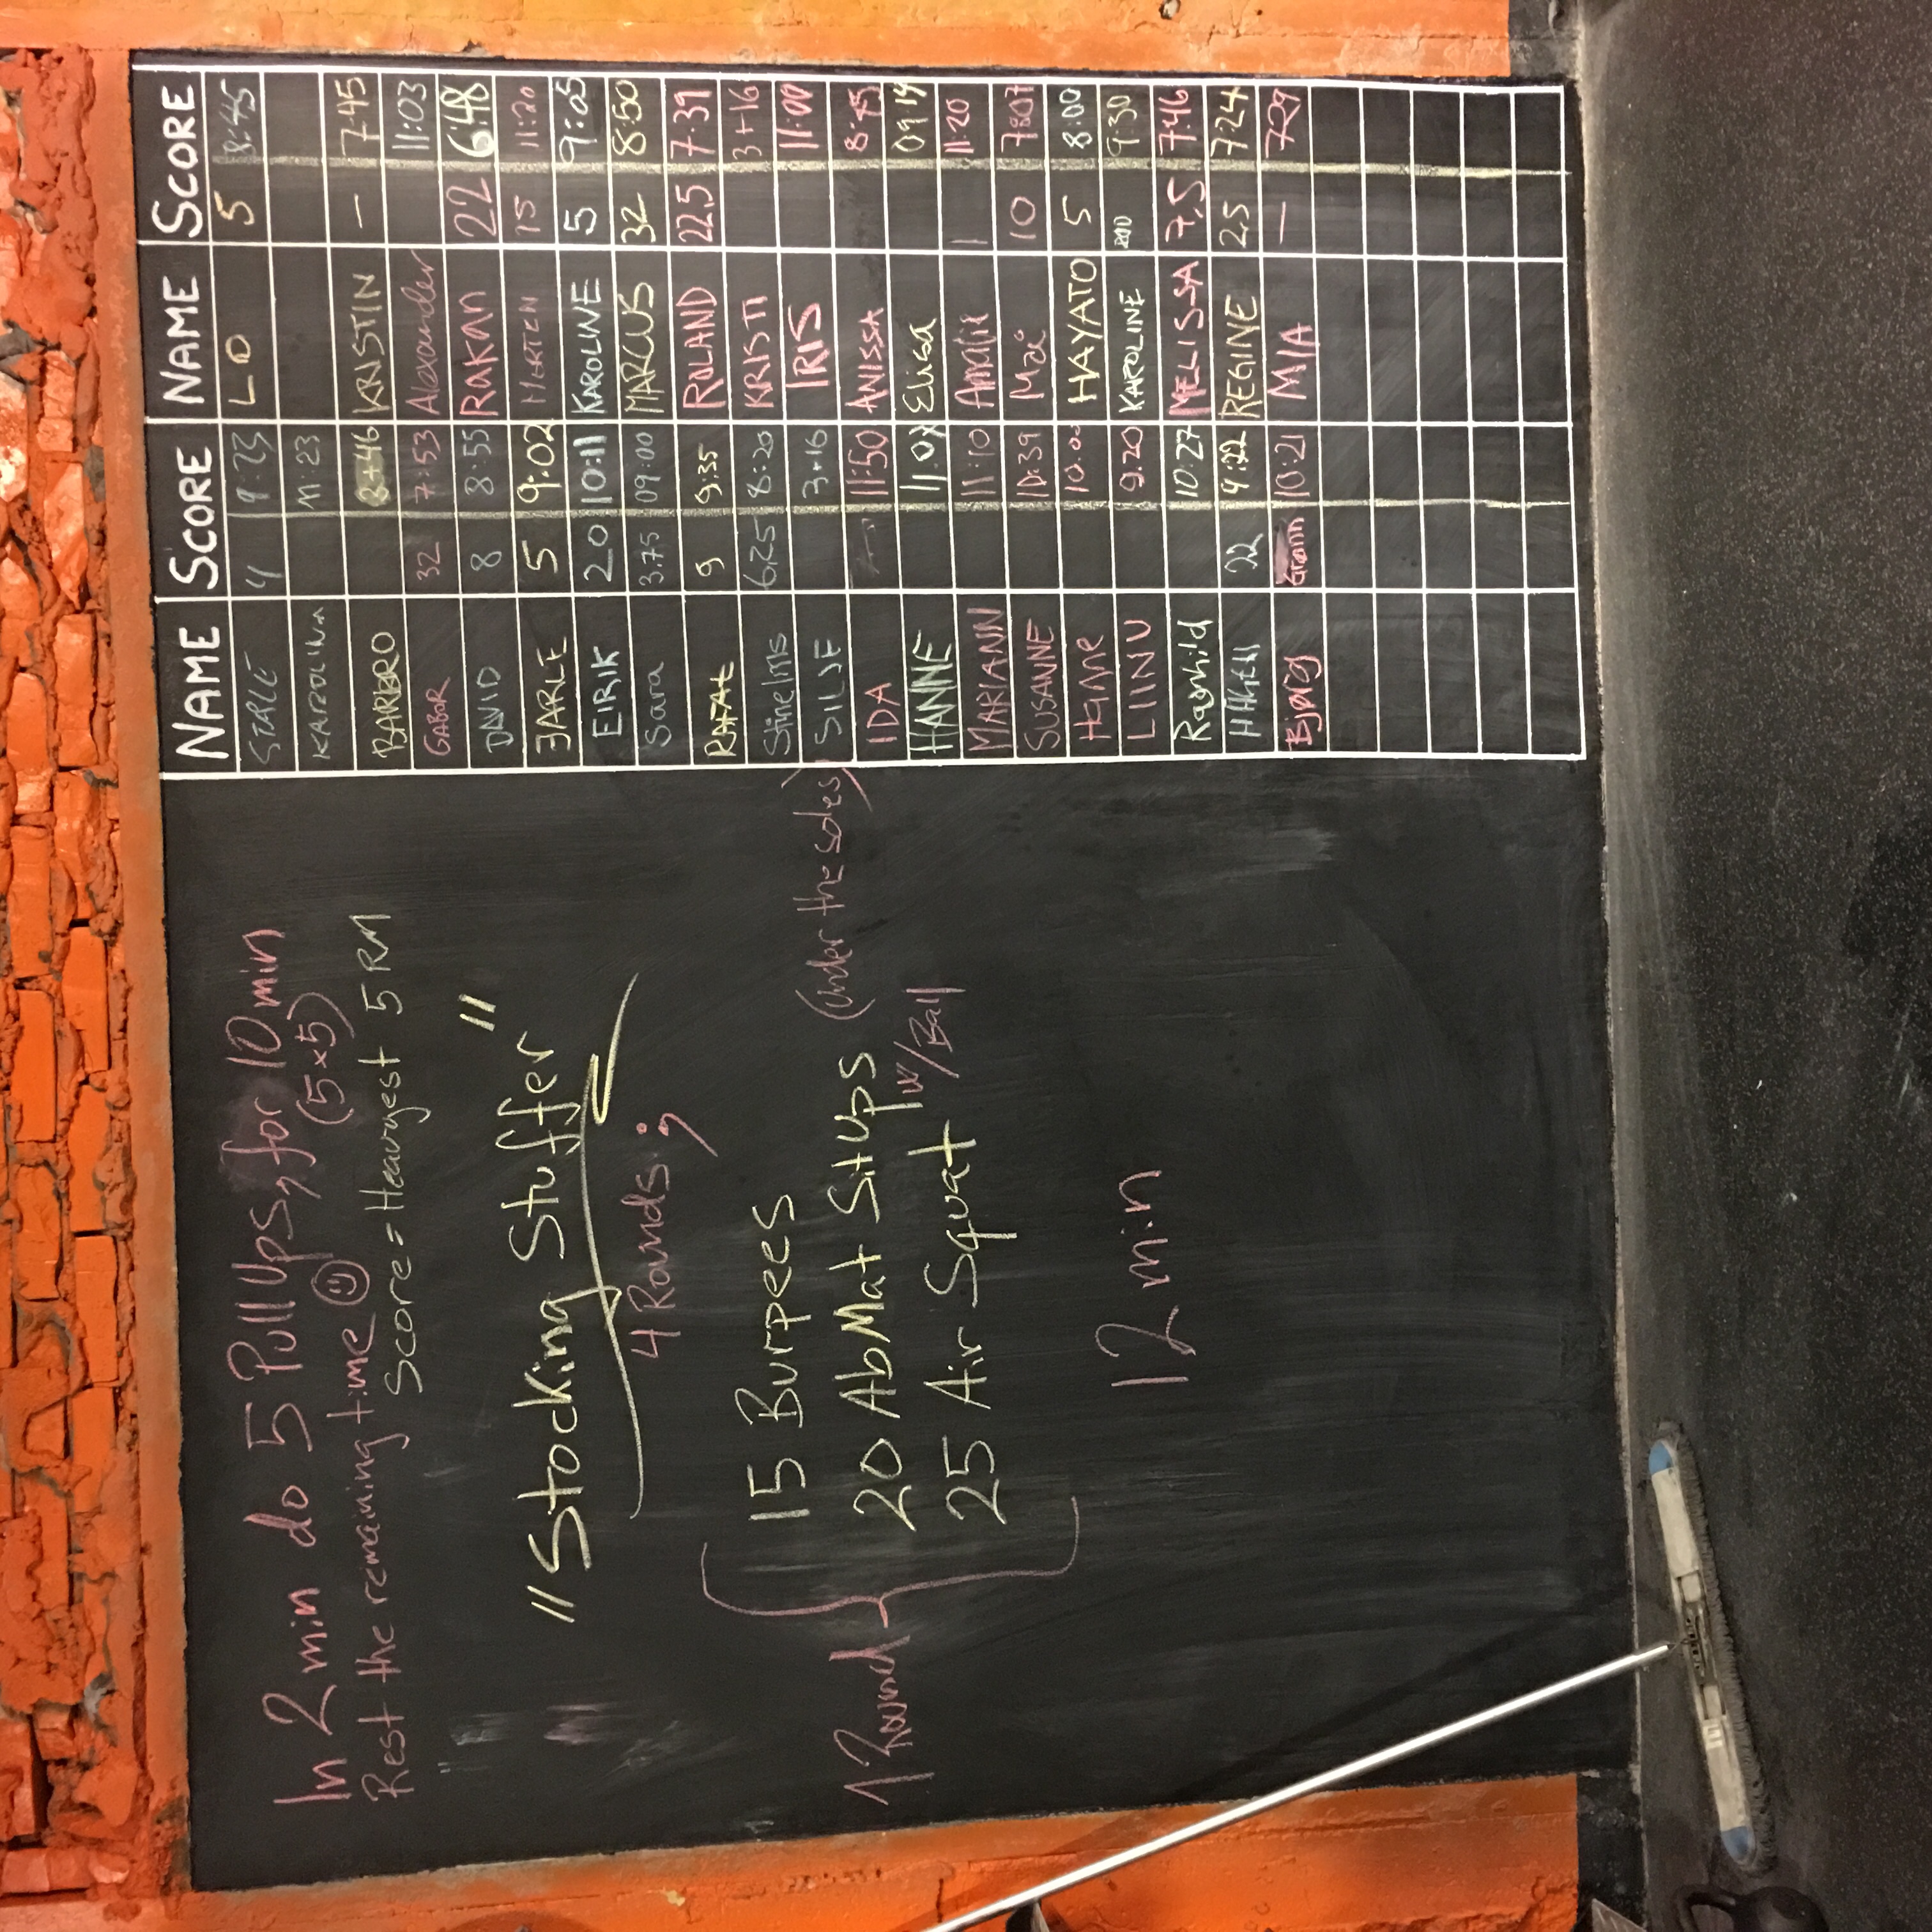 In 2 min do 5 Pull Ups, for 10 min
Rest the remaining time (5x5)
Score = Heavyest 5 RM
"Stocking Stuffer"
4 Rounds;
1 Round
15 Burpees
20 AbMat Situps (under the soles)
25 Air Squat w/Ball
12 min
NAME SCORE NAME SCORE
STÅLE 4 9:23 LO 5 8:45
KAROLINA 11:23
BARBRO 3+46 KRISTIN — 7:45
GABOR 32 7:53 Alexander 11:03
DAVID 8 8:55 RAKAN 22 6:48
JARLE 5 9:02 MORTEN 15 11:20
EIRIK 20 10:11 KAROLINE 5 9:05
Sara 3.75 09:00 MARCUS 32 8:50
RAFAL 9 9:35 ROLAND 22,5 7:39
6,25 8:20 KRISTI 3+16
SILJE 3+16 IRIS 11:00
IDA 11:50 ANISSA 8:45
HANNE Elisa 09 19
MARIANN 11:10 Amalie 1 11:20
SUSANNE 10:39 Mai 10
Hanne 10:00 HAYATO 5 8:00
LIINU 9:20 KAROLINE 9:30
Ragnhild 10:27 MELISSA 7,5 7:46
22 9:22 REGINE 2,5 7:24
Bjørg Grønn 10:21 MIA — 7:29